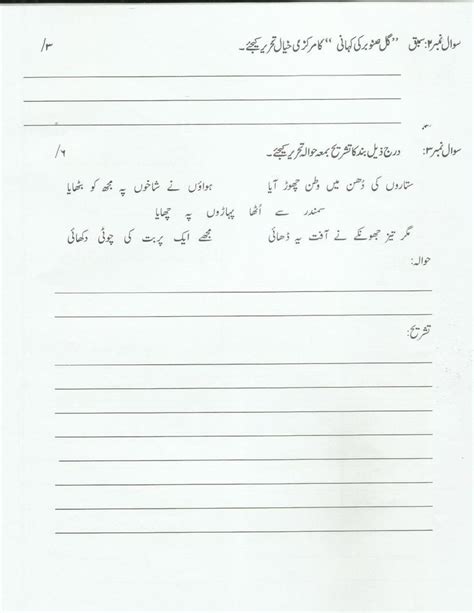 سوال نمبر۲: سبق ”گل صنوبر کی کہانی“ کا مرکزی خیال تحریر کیجئے۔ /۳
سوال نمبر۳: درج ذیل بند کا تشریح بمعہ حوالہ تحریر کیجئے۔ /۶
ستاروں کی دُھن میں وطن چھوڑ آیا ہواؤں نے شاخوں پہ مجھ کو بٹھایا
سمندر سے اُٹھا پہاڑوں پہ چھایا
مگر تیز جھونکے نے آفت یہ ڈھائی مجھے ایک پربت کی چوٹی دکھائی
حوالہ:
تشریح: